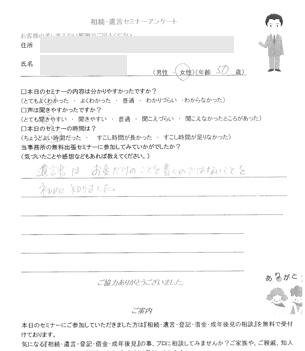 相続・遺言セミナーアンケート
住所
氏名
(男性 ・ 女性)(年齢 50 歳)
□本日のセミナーの内容は分かりやすかったですか？
(とてもよくわかった ・ よくわかった ・ 普通 ・ わかりづらい ・ わからなかった)
□声は聞きやすかったですか？
(とても聞きやすい ・ 聞きやすい ・ 普通 ・ 聞こえづらい ・ 聞こえなかったところがあった)
□本日のセミナーの時間は？
(ちょうどよい時間だった ・ すこし時間が長かった ・ すこし時間が足りなかった)
当事務所の無料出張セミナーに参加してみていかがでしたか？
(気づいたことや感想などもあれば教えてください。)
遺言書は お金だけのことを書くのではないことを
初めに知りました。
ご協力ありがとうございました。
ありがと
ご案内
本日のセミナーにご参加していただきました方は『相続・遺言・登記・借金・成年後見の相談』を無料で受付
けております。
気になる『相続・遺言・登記・借金・成年後見』の事、プロに相談してみませんか？ご家族や、ご親戚、知人